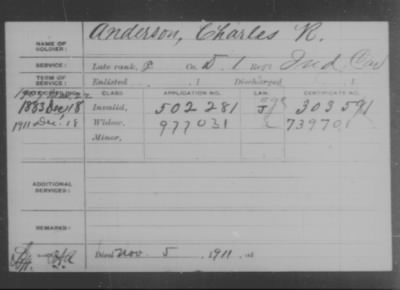 NAME OF SOLDIER: Anderson, Charles R.
SERVICE: Late rank, P Co. D, 1 Reg't Ind Cav
TERM OF SERVICE: Enlisted , 1 Discharged , 1
DATE OF FILING. CLASS. APPLICATION NO. LAW. CERTIFICATE NO.
1883 18 Invalid, 502281 303591
1911 Dec. 18 Widow, 977031 739701
Minor,
ADDITIONAL SERVICES:
REMARKS:
Died Nov. 5, 1911, at